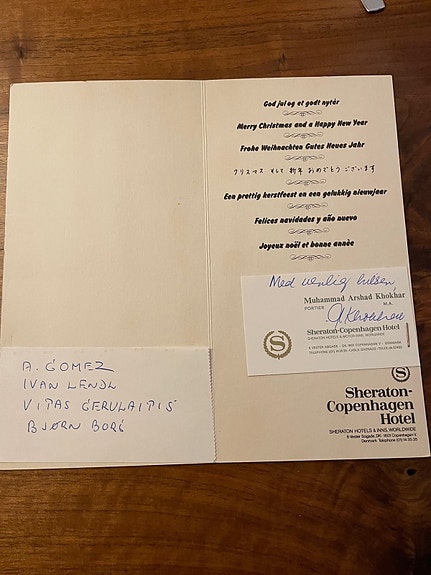 God jul og et godt nytår
Merry Christmas and a Happy New Year
Frohe Weihnachten Gutes Neues Jahr
クリスマス そして 新年 おめでとう ございます
Een prettig kerstfeest en een gelukkig nieuwjaar
Felices navidades y año nuevo
Joyeux noël et bonne année
Med venlig hilsen,
Muhammad Arshad Khokhar
M.A.
PORTIER
A Khokhar
S
Sheraton-Copenhagen Hotel
SHERATON HOTELS & MOTOR INNS, WORLDWIDE
6 VESTER SØGADE, DK-1601 COPENHAGEN V - DANMARK
A. GOMEZ
IVAN LENDL
VITAS GERULAITIS
BJØRN BORG
S
Sheraton-
Copenhagen
Hotel
SHERATON HOTELS & INNS, WORLDWIDE
6 Vester Søgade, DK-1601 Copenhagen V
Denmark Telephone (01) 14 35 35